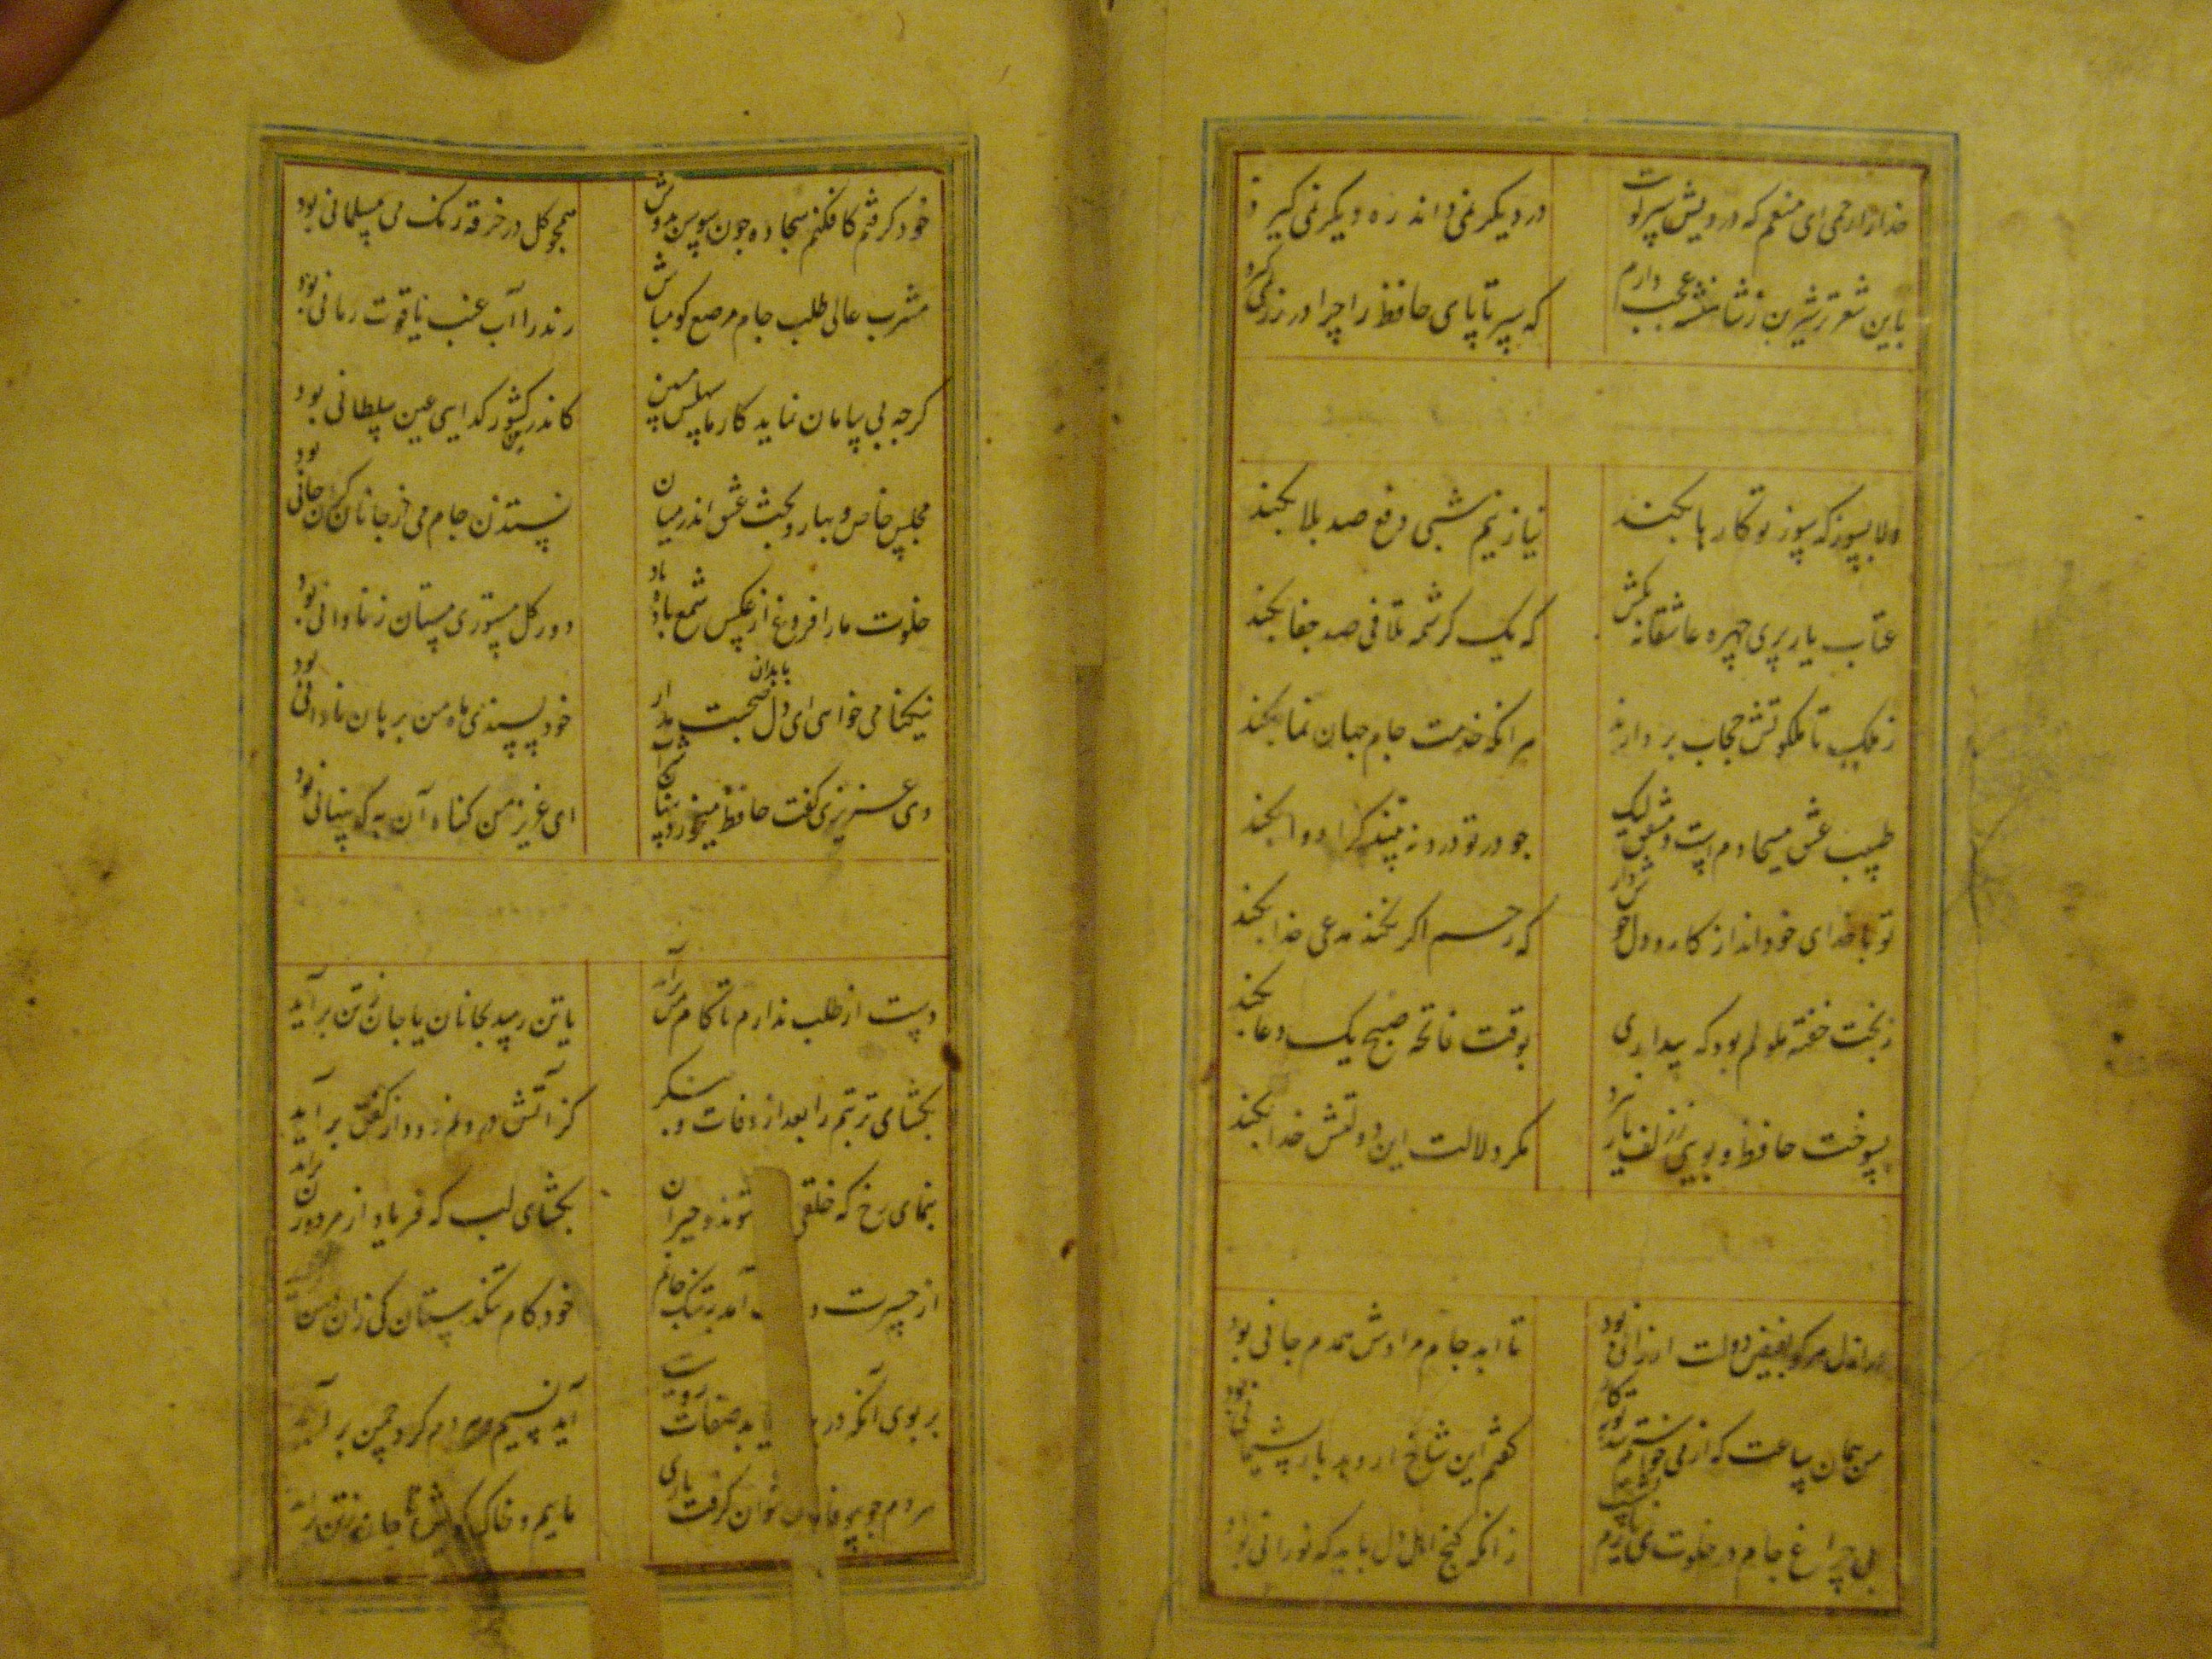 خدا را رحمی ای منعم که درویش سر کویت
در دیکر نمی داند ره دیکر نمی کیرد
باین شعر تر شیرین ز شاهنشه عجب دارم
که سر تا پای حافظ را چرا در زر نمی کیرد
دلا بسوز که سوز تو کارها بکند
نیاز نیم شبی دفع صد بلا بکند
عتاب یار پری چهره عاشقانه بکش
که یک کرشمه تلافی صد جفا بکند
ز ملک تا ملکوتش حجاب بردارند
هر انکه خدمت جام جهان نما بکند
طبیب عشق مسیحا دم است و مشفق لیک
جو درد تو درد نه بیند کرا دوا بکند
تو با خدای خود انداز کار و دل خوش دار
که رحم اکر نکند مدعی خدا بکند
ز بخت خفته ملولم بود که بیداری
بوقت فاتحه صبح یک دعا بکند
بسوخت حافظ و بویی ز زلف یار نبرد
مکر دلالت این دولتش خدا بکند
در ازل هر کو بفیض دولت ارزانی بود
تا ابد جام مرادش همدم جانی بود
من همان ساعت که از می خواستم شد توبه کار
کفتم این شاخ ار دهد بار پشیمانی بود
بی چراغ جام در خلوت نمی یارم نشست
زانکه کنج اهل دل باید که نورانی بود
خود کرفتم کافکنم سجاده جون سوسن بدوش
همجو کل در خرقه رنک می مسلمانی بود
مشرب عالی طلب جام مرصع کو مباش
رند را آب عنب یاقوت رمانی بود
کرجه بی سامان نماید کار ما سهلش مبین
کاندرین کشور کدایی عین سلطانی بود
مجلس خاص و بهار و بحث عشق اندر میان
نستدن جام می از جانان کران جانی بود
خلوت ما را فروغ از عکس شمع باده باد
دور کل مستوری مستان ز نادانی بود
نیکنامی خواهی ای دل با بدان صحبت مدار
خود پسندی ماه من برهان نادانی بود
دی عزیزی کفت حافظ میخورد پنهان شراب
ای عزیز من کناه آن به که پنهانی بود
دست از طلب ندارم تا کام من برآید
یا تن رسد بجانان یا جان ز تن برآید
بکشای تربتم را بعد از وفات و بنکر
کز آتش درونم دود از کفن برآید
بنمای رخ که خلقی شوند و حیران
بکشای لب که فریاد از مرد و زن براید
از حسرت آمد بتنک جانم
خود کام تنکدستان کی زان دهن
بر بوی آنکه در یابد صفات رویت
آید نسیم هر دم کرد چمن برآید
هر دم جو بیوفایان نتوان کرفت یاری
ماییم و خاک کویش تا جان ز تن براید